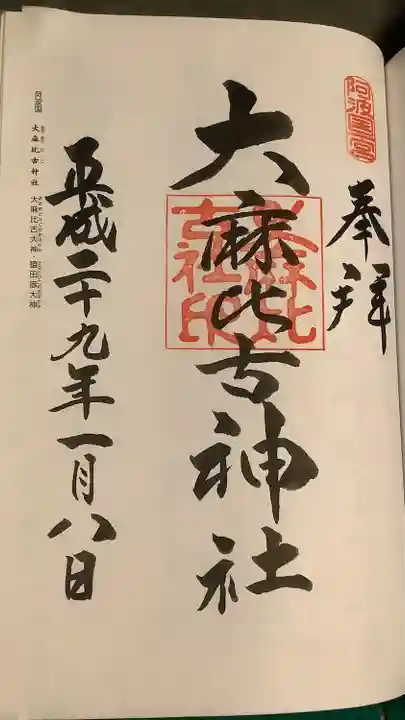 阿波一宮
奉拝
大麻比古神社
平成二十九年一月八日
阿波国 大麻比古神社 大麻比古大神・猿田彦大神